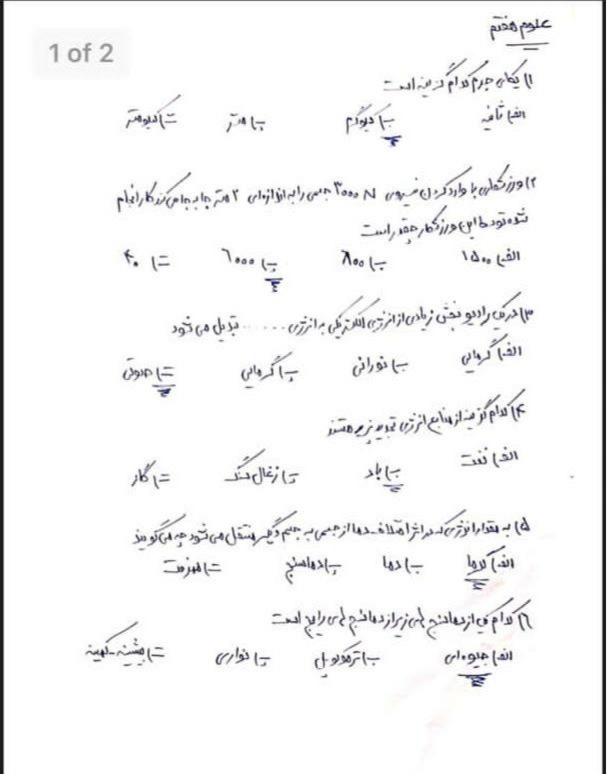 علوم هفتم
1 of 2
۱) یکای جرم کدام گزینه است
الف) ثانیه ب) کیلوگرم پ) متر ت) کیلومتر
۲) ورزشکاری با وارد کردن نیروی ۳۰۰۰ N جسمی را به اندازه‌ی ۲ متر جا به جا می‌کند کار انجام
شده توسط این ورزشکار چقدر است
الف) ۱۵۰۰ ب) ۸۰۰ پ) ۶۰۰۰ ت) ۴۰
۳) در یک رادیو بخش زیادی از انرژی الکتریکی به انرژی ...... تبدیل می شود
الف) گرمایی ب) نورانی پ) گرمایی ت) صوتی
۴) کدام گزینه از منابع انرژی تجدیدپذیر هستند
الف) نفت ب) باد پ) زغال سنگ ت) گاز
۵) به مقدار انرژی که در اثر اختلاف دما از جسمی به جسم دیگر منتقل می شود چه می گویند
الف) گرما ب) دما پ) دماسنج ت)
۶) کدام یک از دماسنج های زیر از دماسنج های رایج است
الف) جیوه‌ای ب) ترموکوپل پ) نواری ت) بیشینه-کمینه